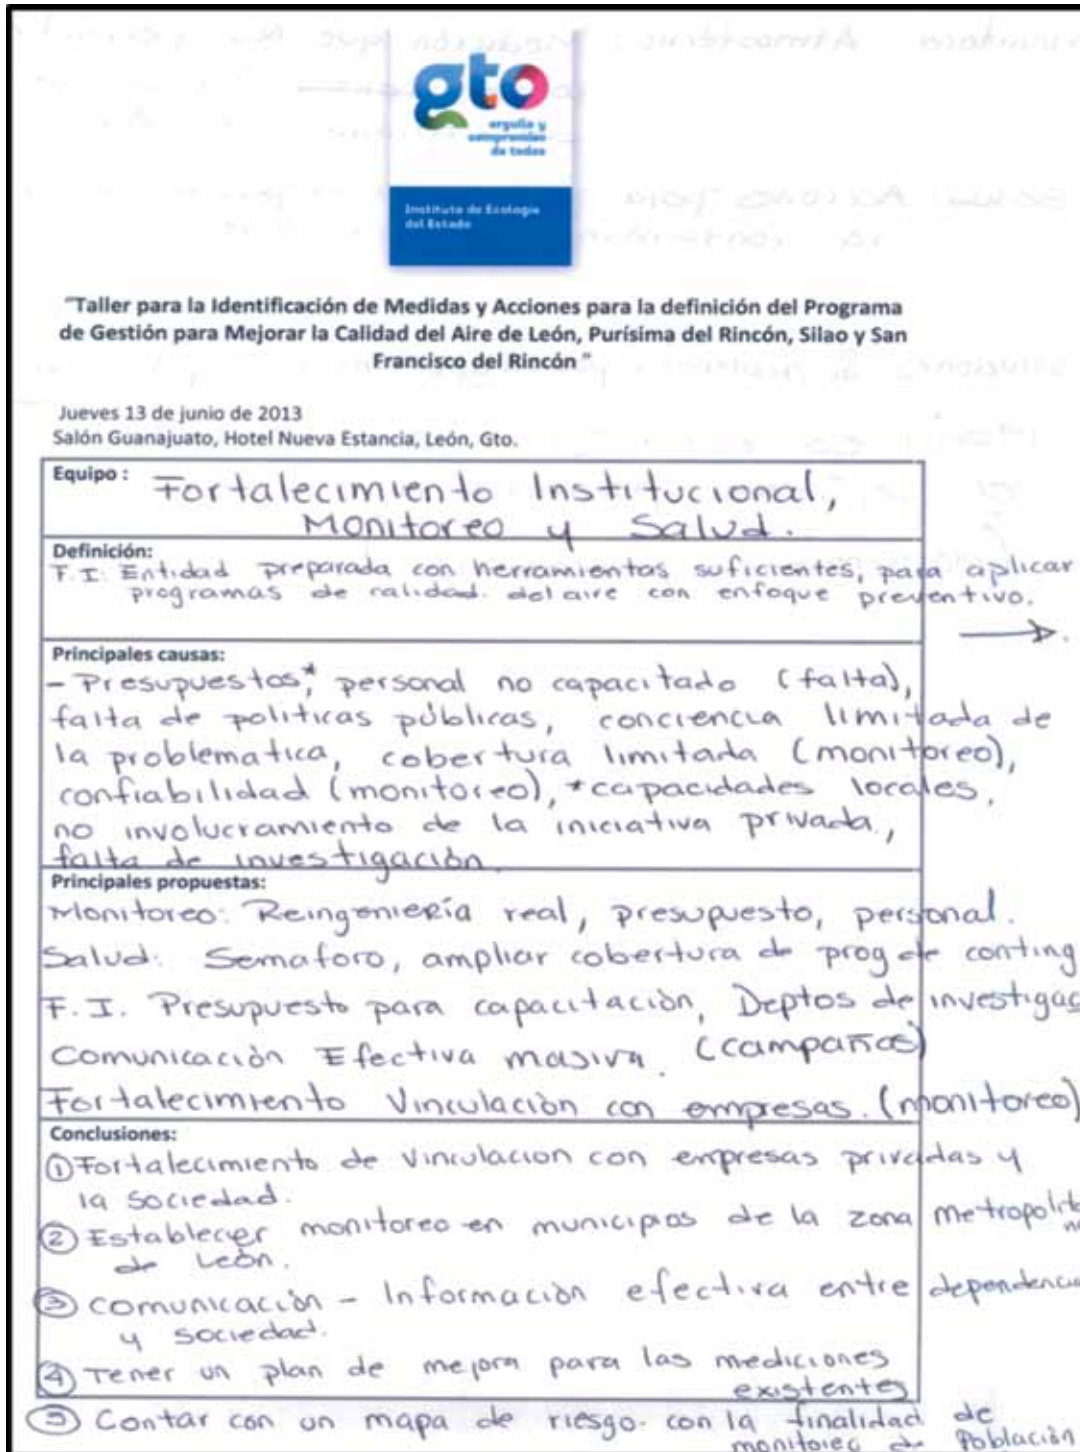 gto
orgullo y
compromiso
de todos
Instituto de Ecología
del Estado
"Taller para la Identificación de Medidas y Acciones para la definición del Programa
de Gestión para Mejorar la Calidad del Aire de León, Purísima del Rincón, Silao y San
Francisco del Rincón"
Jueves 13 de junio de 2013
Salón Guanajuato, Hotel Nueva Estancia, León, Gto.
Equipo: Fortalecimiento Institucional,
Monitoreo y Salud.
Definición:
F.I: Entidad preparada con herramientas suficientes, para aplicar
programas de calidad del aire con enfoque preventivo.
Principales causas:
- Presupuestos,* personal no capacitado (falta),
falta de politicas públicas, conciencia limitada de
la problematica, cobertura limitada (monitoreo),
confiabilidad (monitoreo), *capacidades locales,
no involucramiento de la iniciativa privada,
falta de investigación.
Principales propuestas:
Monitoreo: Reingeniería real, presupuesto, personal.
Salud: Semaforo, ampliar cobertura de prog de conting
F.I. Presupuesto para capacitación, Deptos de investigac
Comunicación Efectiva masiva. (campañas)
Fortalecimiento Vinculación con empresas. (monitoreo)
Conclusiones:
① Fortalecimiento de Vinculacion con empresas privadas y
la sociedad.
② Establecer monitoreo en municipios de la zona metropolita
na
de León.
③ Comunicación - Información efectiva entre dependencia
y sociedad.
④ Tener un plan de mejora para las mediciones
existentes
⑤ Contar con un mapa de riesgo con la finalidad de
monitoreo de Población